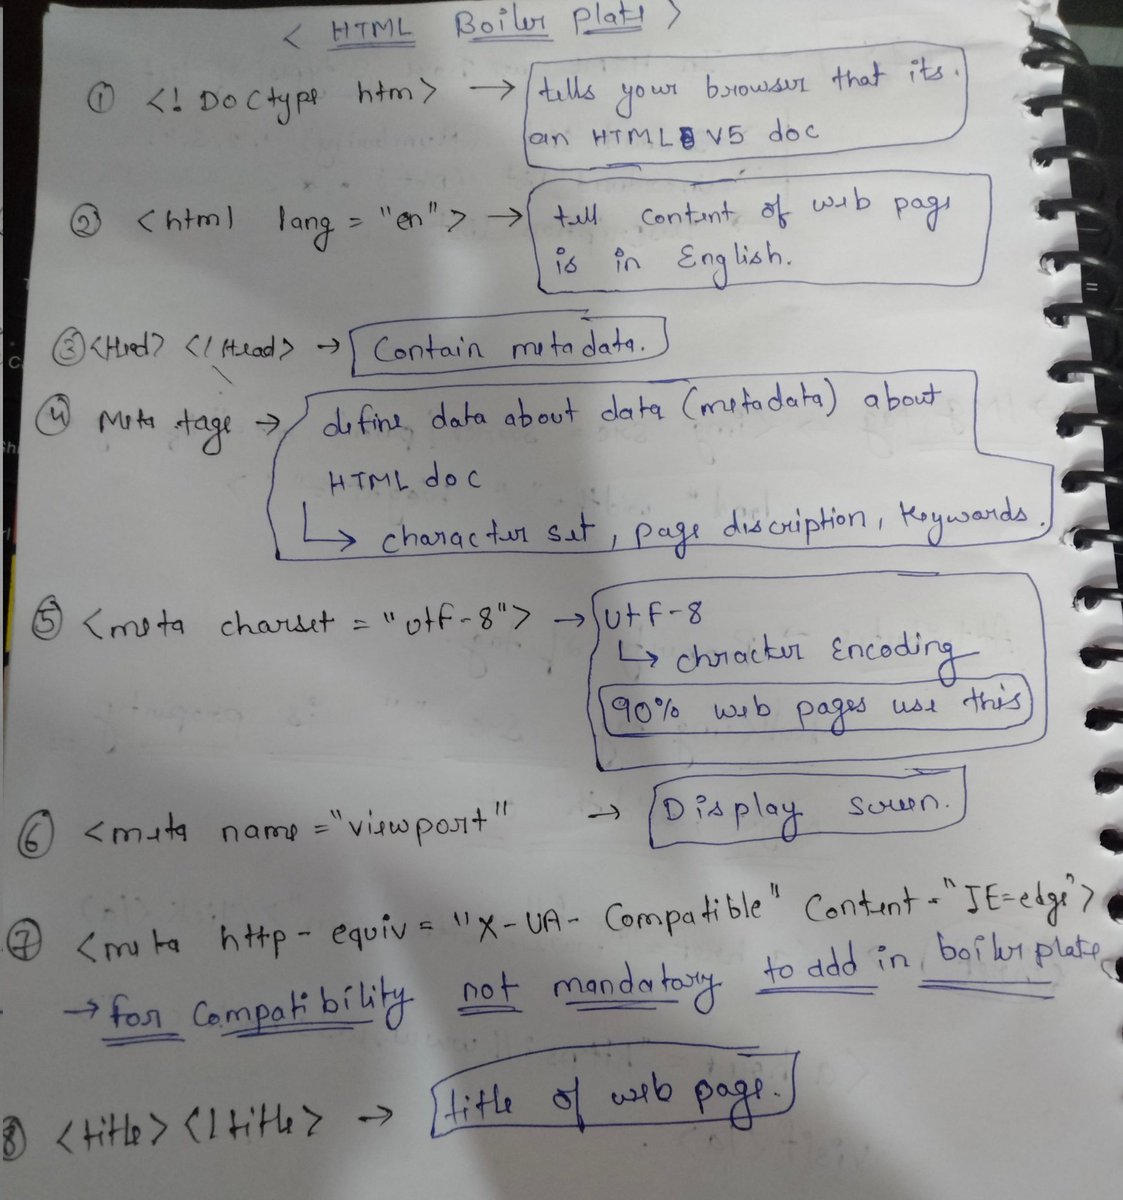 < HTML Boiler Plate >
① <! DOCtype htm> → tells your browser that its.
an HTML V5 doc
② <html lang = "en"> → tell content of web page
is in English.
③ <Head> </Head> → Contain metadata.
④ Meta tage → define data about data (metadata) about
HTML doc
↳ character set, page discription, keywords.
⑤ <meta charset = "utf-8"> → utf-8
↳ chracter Encoding
90% web pages use this
⑥ <meta name = "viewport" → Display screen.
⑦ <meta http-equiv = "X-UA-Compatible" Content = "IE=edge">
→ for compatibility not mandatory to add in boiler plate
⑧ <title> </title> → title of web page.